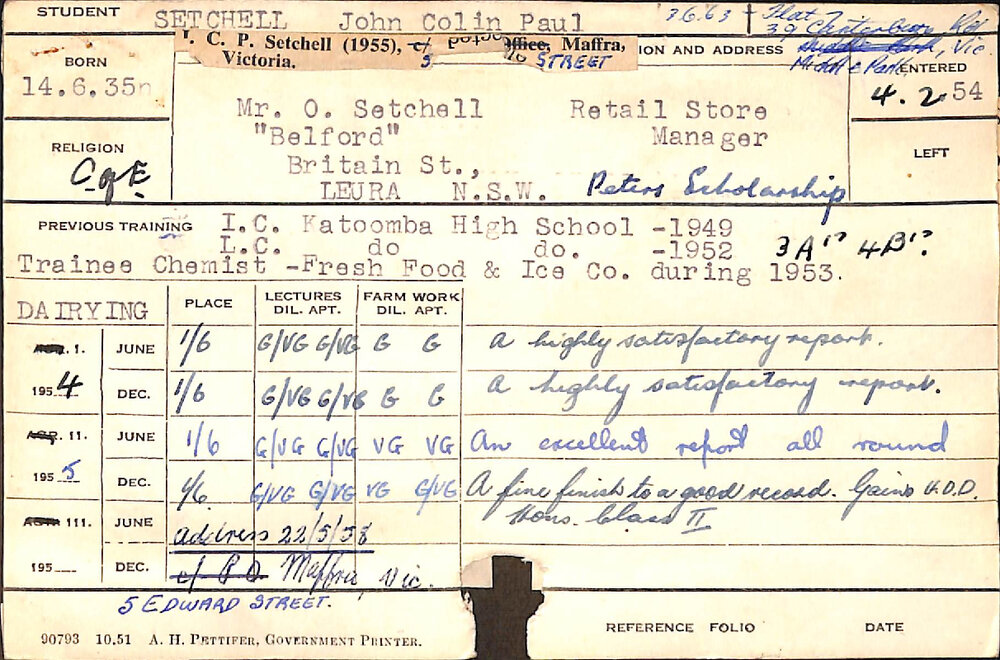 STUDENT SETCHELL John Colin Paul 3.6.63 Flat 7
39 Canterbury Rd
Middle Park, Vic.
Middle Park,
J. C. P. Setchell (1955), c/ Post Office, Maffra,
Victoria. 5 STREET
ION AND ADDRESS
BORN
14.6.35
ENTERED
4.2.54
Mr. O. Setchell Retail Store
"Belford" Manager
Britain St.,
LEURA N.S.W. Peters Scholarship
RELIGION
C of E
LEFT
PREVIOUS TRAINING I.C. Katoomba High School -1949
L.C. do do. -1952 3A's 4B's
Trainee Chemist -Fresh Food & Ice Co. during 1953.
DAIRYING PLACE LECTURES FARM WORK
DIL. APT. DIL. APT.
AGR. 1. JUNE 1/6 G/VG G/VG G G A highly satisfactory report.
1954 DEC. 1/6 G/VG G/VG G G A highly satisfactory report.
AGR. 11. JUNE 1/6 G/VG G/VG VG VG An excellent report all round
1955 DEC. 1/6 G/VG G/VG VG G/VG A fine finish to a good record. Gains H.D.D.
Hons. Class II
AGR. 111. JUNE Address 22/5/58
195 DEC. c/ P.O. Maffra, Vic.
5 EDWARD STREET.
90793 10.51 A. H. PETTIFER, GOVERNMENT PRINTER.
REFERENCE FOLIO DATE